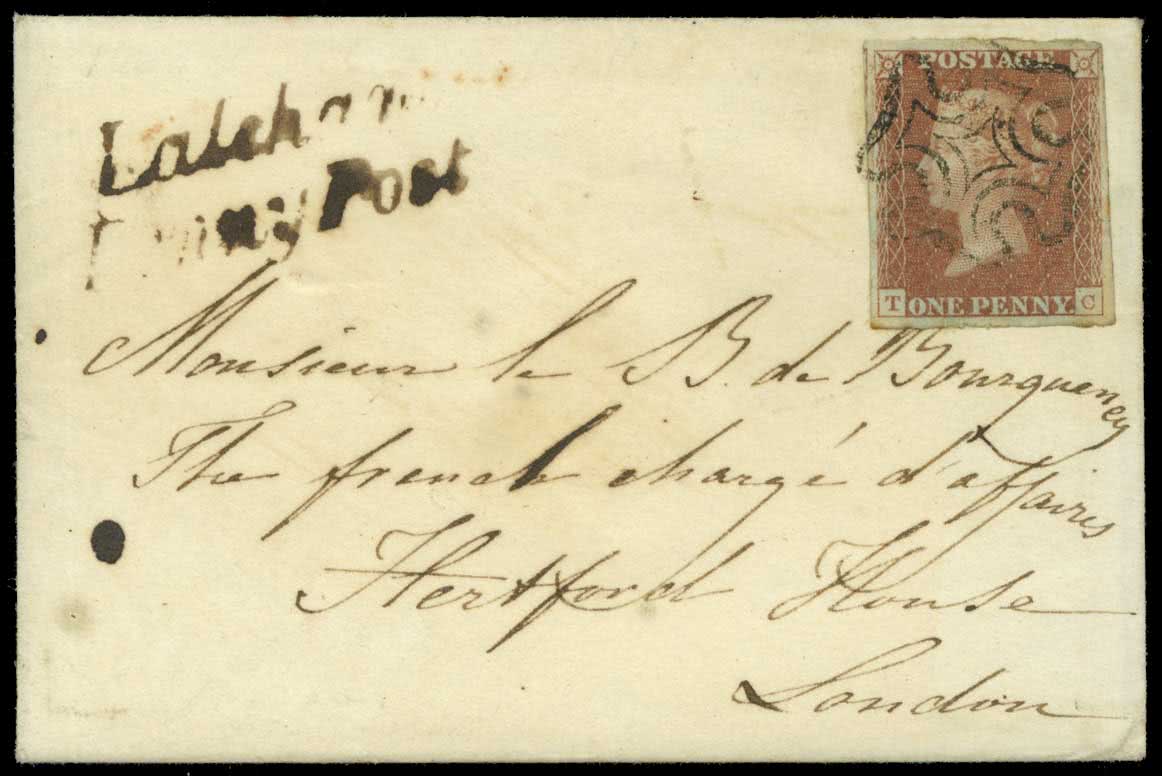 Lalcham
Penny Post
POSTAGE
T ONE PENNY. C
Monsieur le B. de Bourqueney
The french chargé d'affaires
Hertford House
London